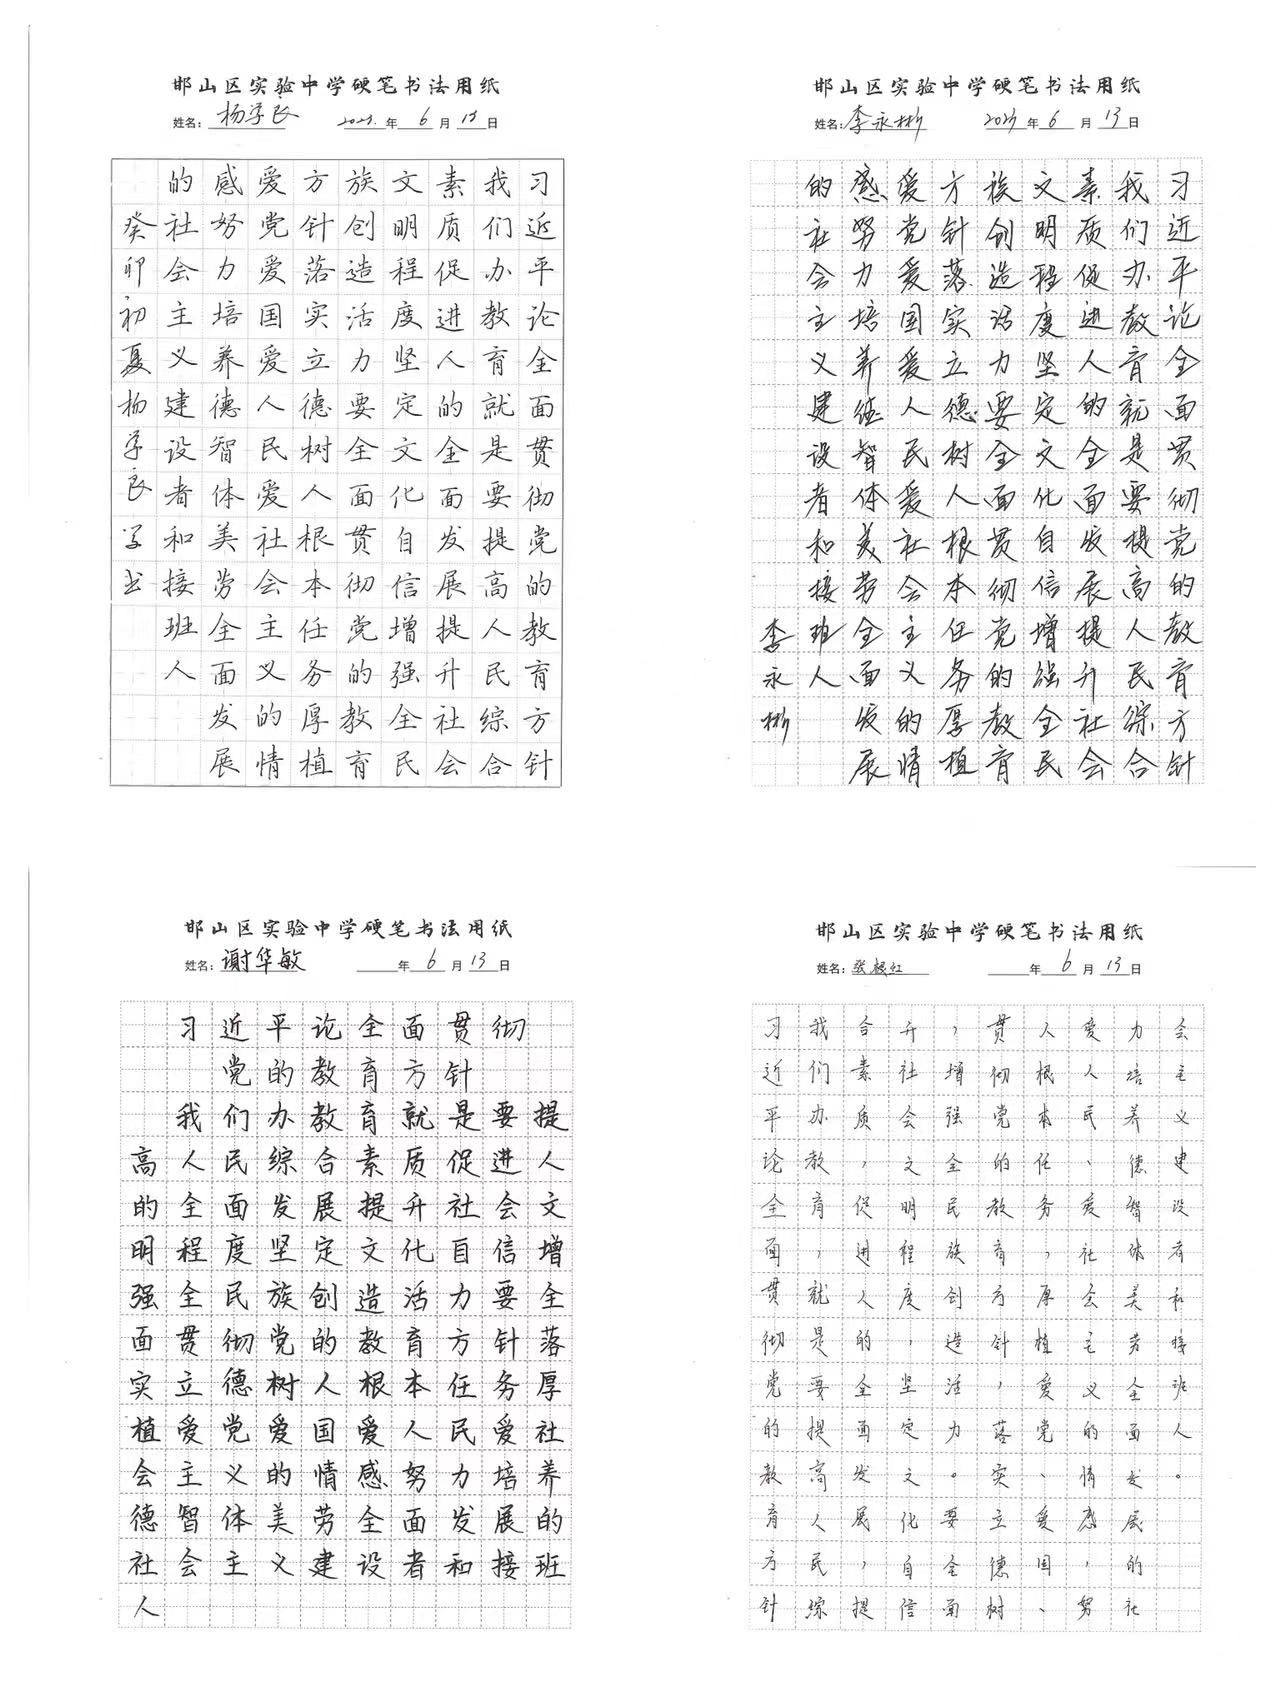 邯山区实验中学硬笔书法用纸
姓名：杨学良 2023.年 6月 13日
习近平论全面贯彻党的教育方针
我们办教育就是要提高人民综合
素质促进人的全面发展提升社会
文明程度坚定文化自信增强全民
族创造活力要全面贯彻党的教育
方针落实立德树人根本任务厚植
爱党爱国爱人民爱社会主义的情
感努力培养德智体美劳全面发展
的社会主义建设者和接班人
癸卯初夏杨学良学书
邯山区实验中学硬笔书法用纸
姓名：李永彬 2023年 6月 13日
习近平论全面贯彻党的教育方针
我们办教育就是要提高人民综合
素质促进人的全面发展提升社会
文明程度坚定文化自信增强全民
族创造活力要全面贯彻党的教育
方针落实立德树人根本任务厚植
爱党爱国爱人民爱社会主义的情
感努力培养德智体美劳全面发展
的社会主义建设者和接班人
李永彬
邯山区实验中学硬笔书法用纸
姓名：谢华敏 年 6月 13日
习近平论全面贯彻
党的教育方针
我们办教育就是要提
高人民综合素质促进人
的全面发展提升社会文
明程度坚定文化自信增
强全民族创造活力要全
面贯彻党的教育方针落
实立德树人根本任务厚
植爱党爱国爱人民爱社
会主义的情感努力培养
德智体美劳全面发展的
社会主义建设者和接班
人
邯山区实验中学硬笔书法用纸
姓名：张根红 年 6月 13日
习近平论全面贯彻党的教育方针
我们办教育，就是要提高人民综
合素质，促进人的全面发展，提
升社会文明程度，坚定文化自信
，增强全民族创造活力。要全面
贯彻党的教育方针，落实立德树
人根本任务，厚植爱党、爱国、
爱人民、爱社会主义的情感，努
力培养德智体美劳全面发展的社
会主义建设者和接班人。